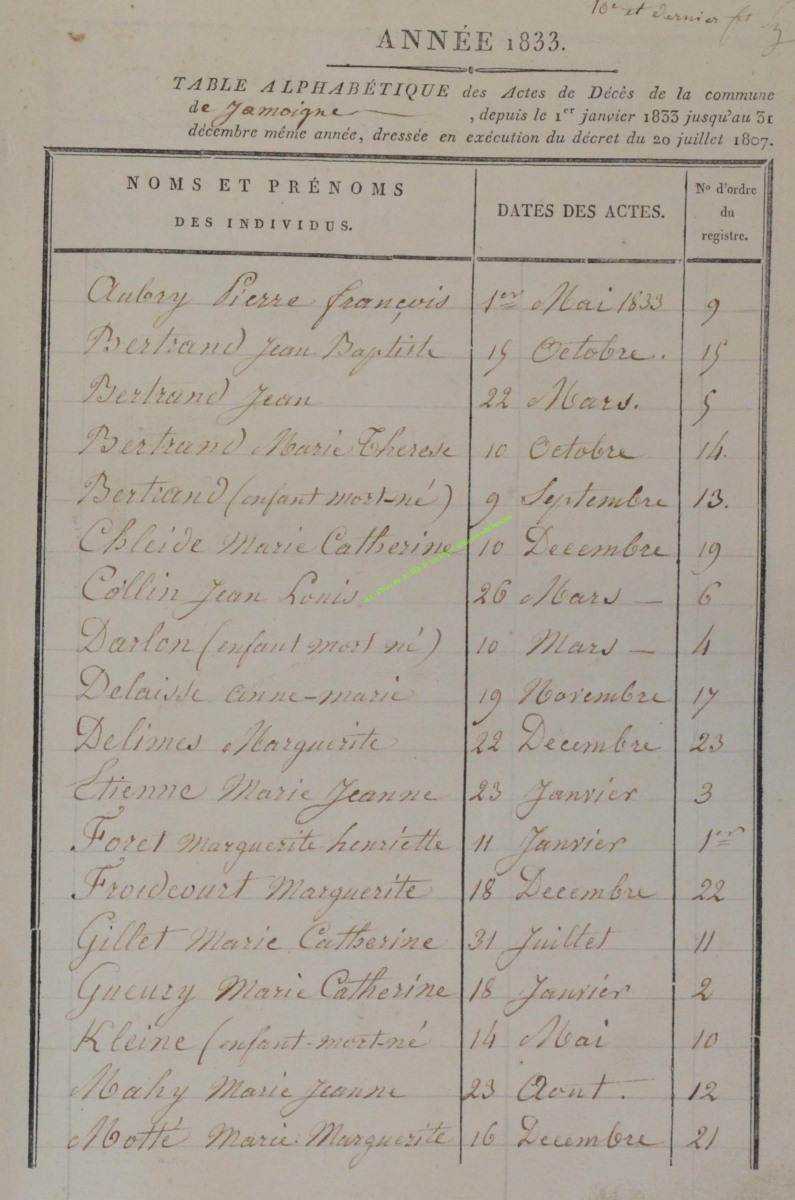 10e et dernier ft
ANNÉE 1833.
TABLE ALPHABÉTIQUE des Actes de Décès de la commune
de Jamoigne, depuis le 1er janvier 1833 jusqu'au 31
décembre même année, dressée en exécution du décret du 20 juillet 1807.
NOMS ET PRÉNOMS
DES INDIVIDUS.
DATES DES ACTES.
No d'ordre
du
registre.
Aubry Pierre françois 1er Mai 1833 9
Bertrand Jean Baptiste 15 Octobre. 15
Bertrand Jean 22 Mars. 5
Bertrand Marie Therese 10 Octobre 14.
Bertrand (enfant mort-né) 9 Septembre 13.
Chleide Marie Catherine 10 Decembre 19
Collin Jean Louis 26 Mars — 6
Darlon (enfant mort né) 10 Mars — 4
Delaisse anne-marie 19 Novembre 17
Delimes Marguerite 22 Decembre 23
Etienne Marie Jeanne 23 Janvier 3
Foret marguerite henriette 11 Janvier 1er
Froidcourt Marguerite 18 Decembre 22
Gillet Marie Catherine 31 Juillet 11
Gueury Marie Catherine 18 Janvier 2
Kleine (enfant-mort-né 14 Mai 10
Mahy Marie Jeanne 23 Aout. 12
Motté Marie Marguerite 16 Decembre 21